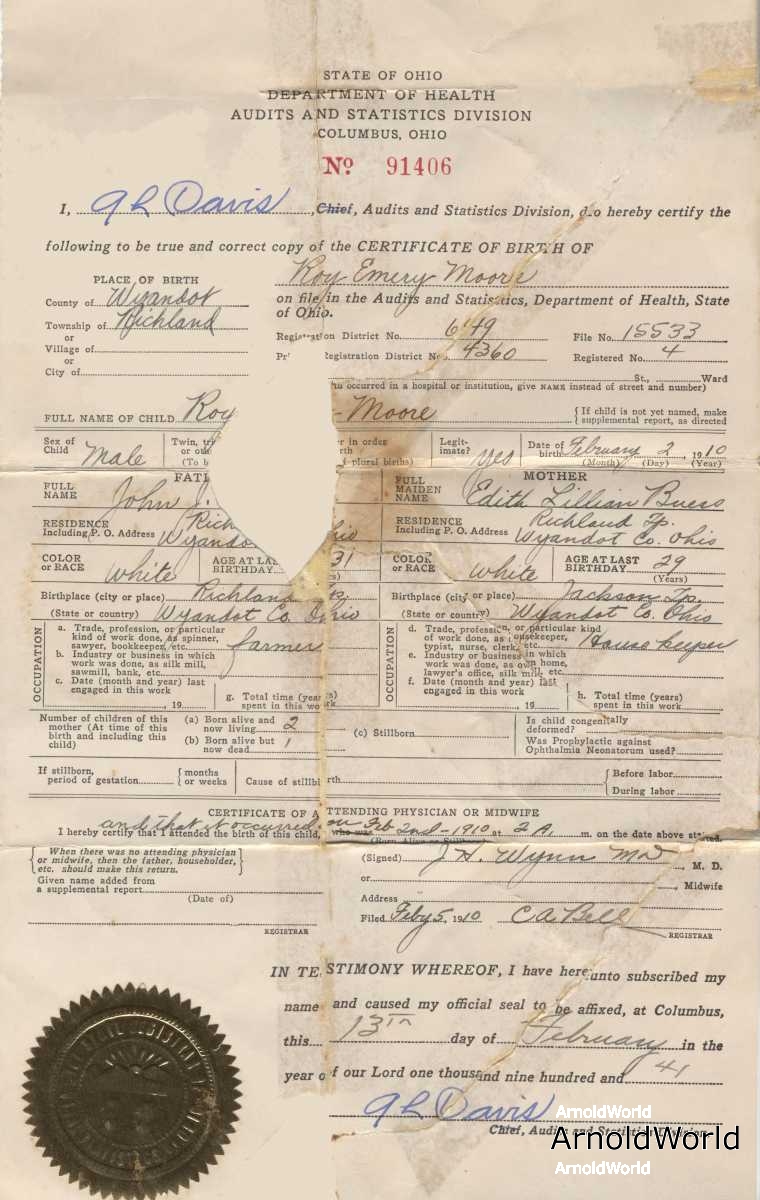 STATE OF OHIO
DEPARTMENT OF HEALTH
AUDITS AND STATISTICS DIVISION
COLUMBUS, OHIO
No 91406
I, Davis, Chief, Audits and Statistics Division, do hereby certify the
following to be true and correct copy of the CERTIFICATE OF BIRTH OF
Roy Emery Moore
PLACE OF BIRTH
County of Wyandot
Township of Richland
or
Village of
or
City of
on file in the Audits and Statistics, Department of Health, State
of Ohio.
Registration District No. 649 File No. 15533
Registration District No. 4360 Registered No. 4
St., Ward
occurred in a hospital or institution, give NAME instead of street and number)
FULL NAME OF CHILD Roy Moore {If child is not yet named, make
supplemental report, as directed
Sex of
Child Male
Twin,
(To b
in order
plural births)
Legit-
imate? yes
Date of
birth February 2, 1910
(Month) (Day) (Year)
FULL
NAME John J.
RESIDENCE
Including P. O. Address
COLOR
or RACE White AGE AT LAST
BIRTHDAY 31
Birthplace (city or place) Richland
(State or country) Wyandot Co. Ohio
MOTHER
FULL
MAIDEN
NAME Edith Lillian
RESIDENCE
Including P. O. Address Richland Tp.
Wyandot Co. Ohio
COLOR
or RACE White AGE AT LAST
BIRTHDAY 29
(Years)
Birthplace (city or place) Jackson Tp.
(State or country) Wyandot Co. Ohio
OCCUPATION
a. Trade, profession, or particular
kind of work done, as spinner,
sawyer, bookkeeper, etc. farmer
b. Industry or business in which
work was done, as silk mill,
sawmill, bank, etc.
c. Date (month and year) last
engaged in this work
, 19
g. Total time (years)
spent in this work
OCCUPATION
d. Trade, profession, or particular
kind of work done, as housekeeper,
typist, nurse, clerk, etc. House keeper
e. Industry or business in which
work was done, as own home,
lawyer's office, silk mill, etc.
f. Date (month and year) last
engaged in this work
, 19
h. Total time (years)
spent in this work
Number of children of this
mother (At time of this
birth and including this
child)
(a) Born alive and
now living 2
(b) Born alive but
now dead 1
(c) Stillborn
Is child congenitally
deformed?
Was Prophylactic against
Ophthalmia Neonatorum used?
If stillborn,
period of gestation {months
or weeks
Cause of stillbirth
{Before labor
During labor
CERTIFICATE OF ATTENDING PHYSICIAN OR MIDWIFE
and that it occurred on Feb 2nd-1910 at 2 A.
I hereby certify that I attended the birth of this child, who was m. on the date above stated.
(Born Alive or Stillborn)
{When there was no attending physician
or midwife, then the father, householder,
etc. should make this return.}
Given name added from
a supplemental report
(Date of)
REGISTRAR
(Signed) J. H. Wynn MD, M. D.
or
, Midwife
Address
Filed Feby 5, 1910 C A Bell
REGISTRAR
IN TESTIMONY WHEREOF, I have hereunto subscribed my
name and caused my official seal to be affixed, at Columbus,
this 13th day of February in the
year of our Lord one thousand nine hundred and 41
Davis
Chief, Audits and Statistics Division
ArnoldWorld
ArnoldWorld
ArnoldWorld